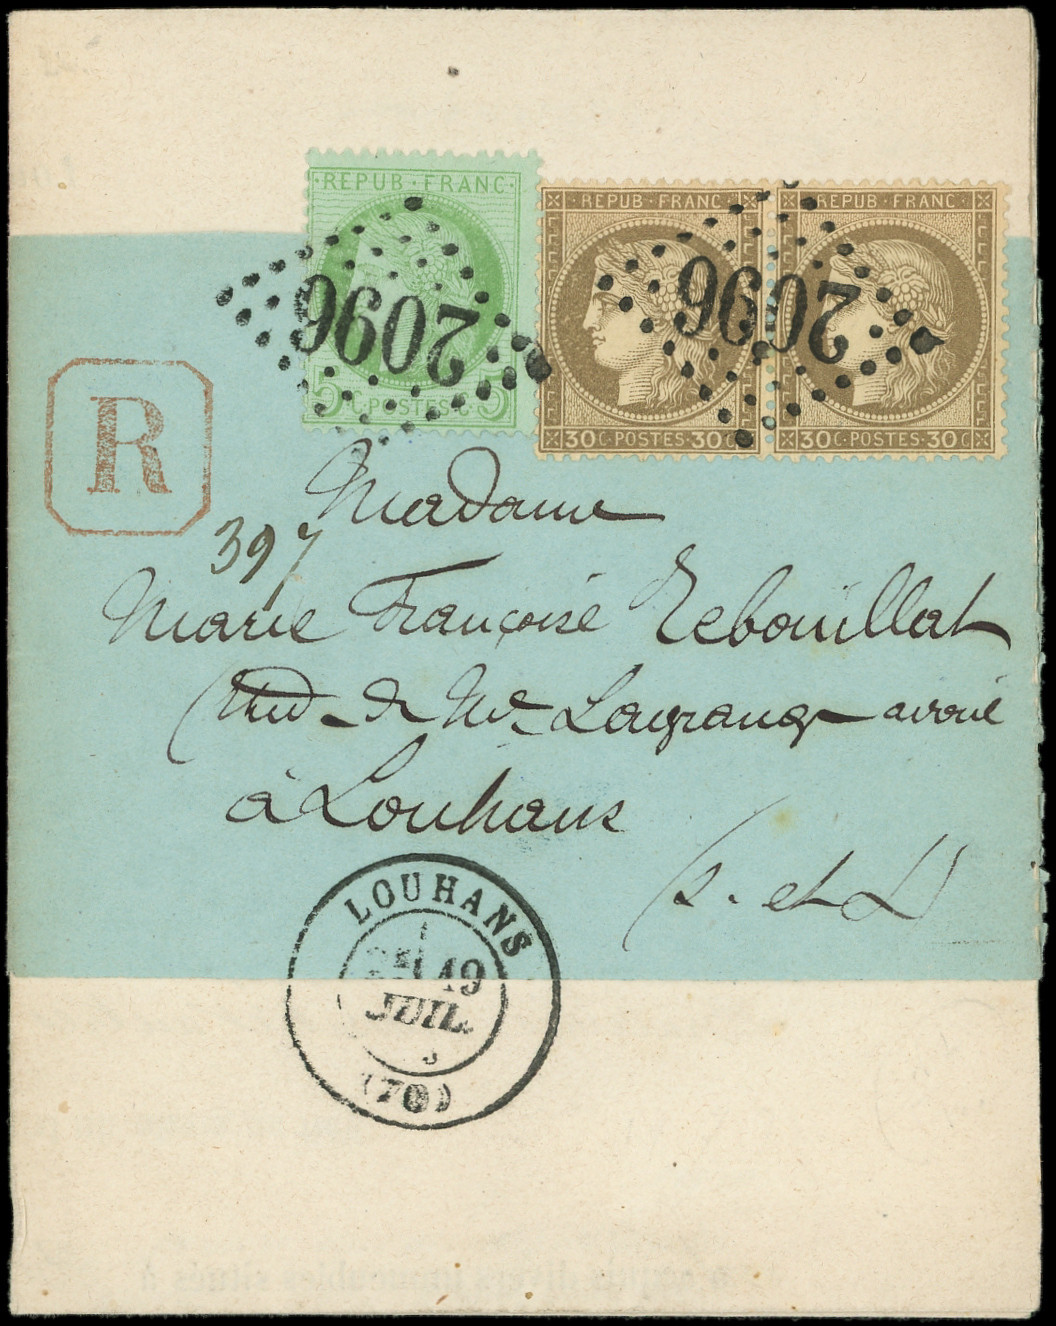 REPUB·FRANC·
5 C·POSTES·C·5
2096
REPUB·FRANC
30C·POSTES·30C
REPUB·FRANC
30C·POSTES·30C
2096
R
397
Madame
Marie Françoise Rebouillat
de Me Lagrange avoué
à Louhans
S. et L
LOUHANS
19
JUIL.
(70)